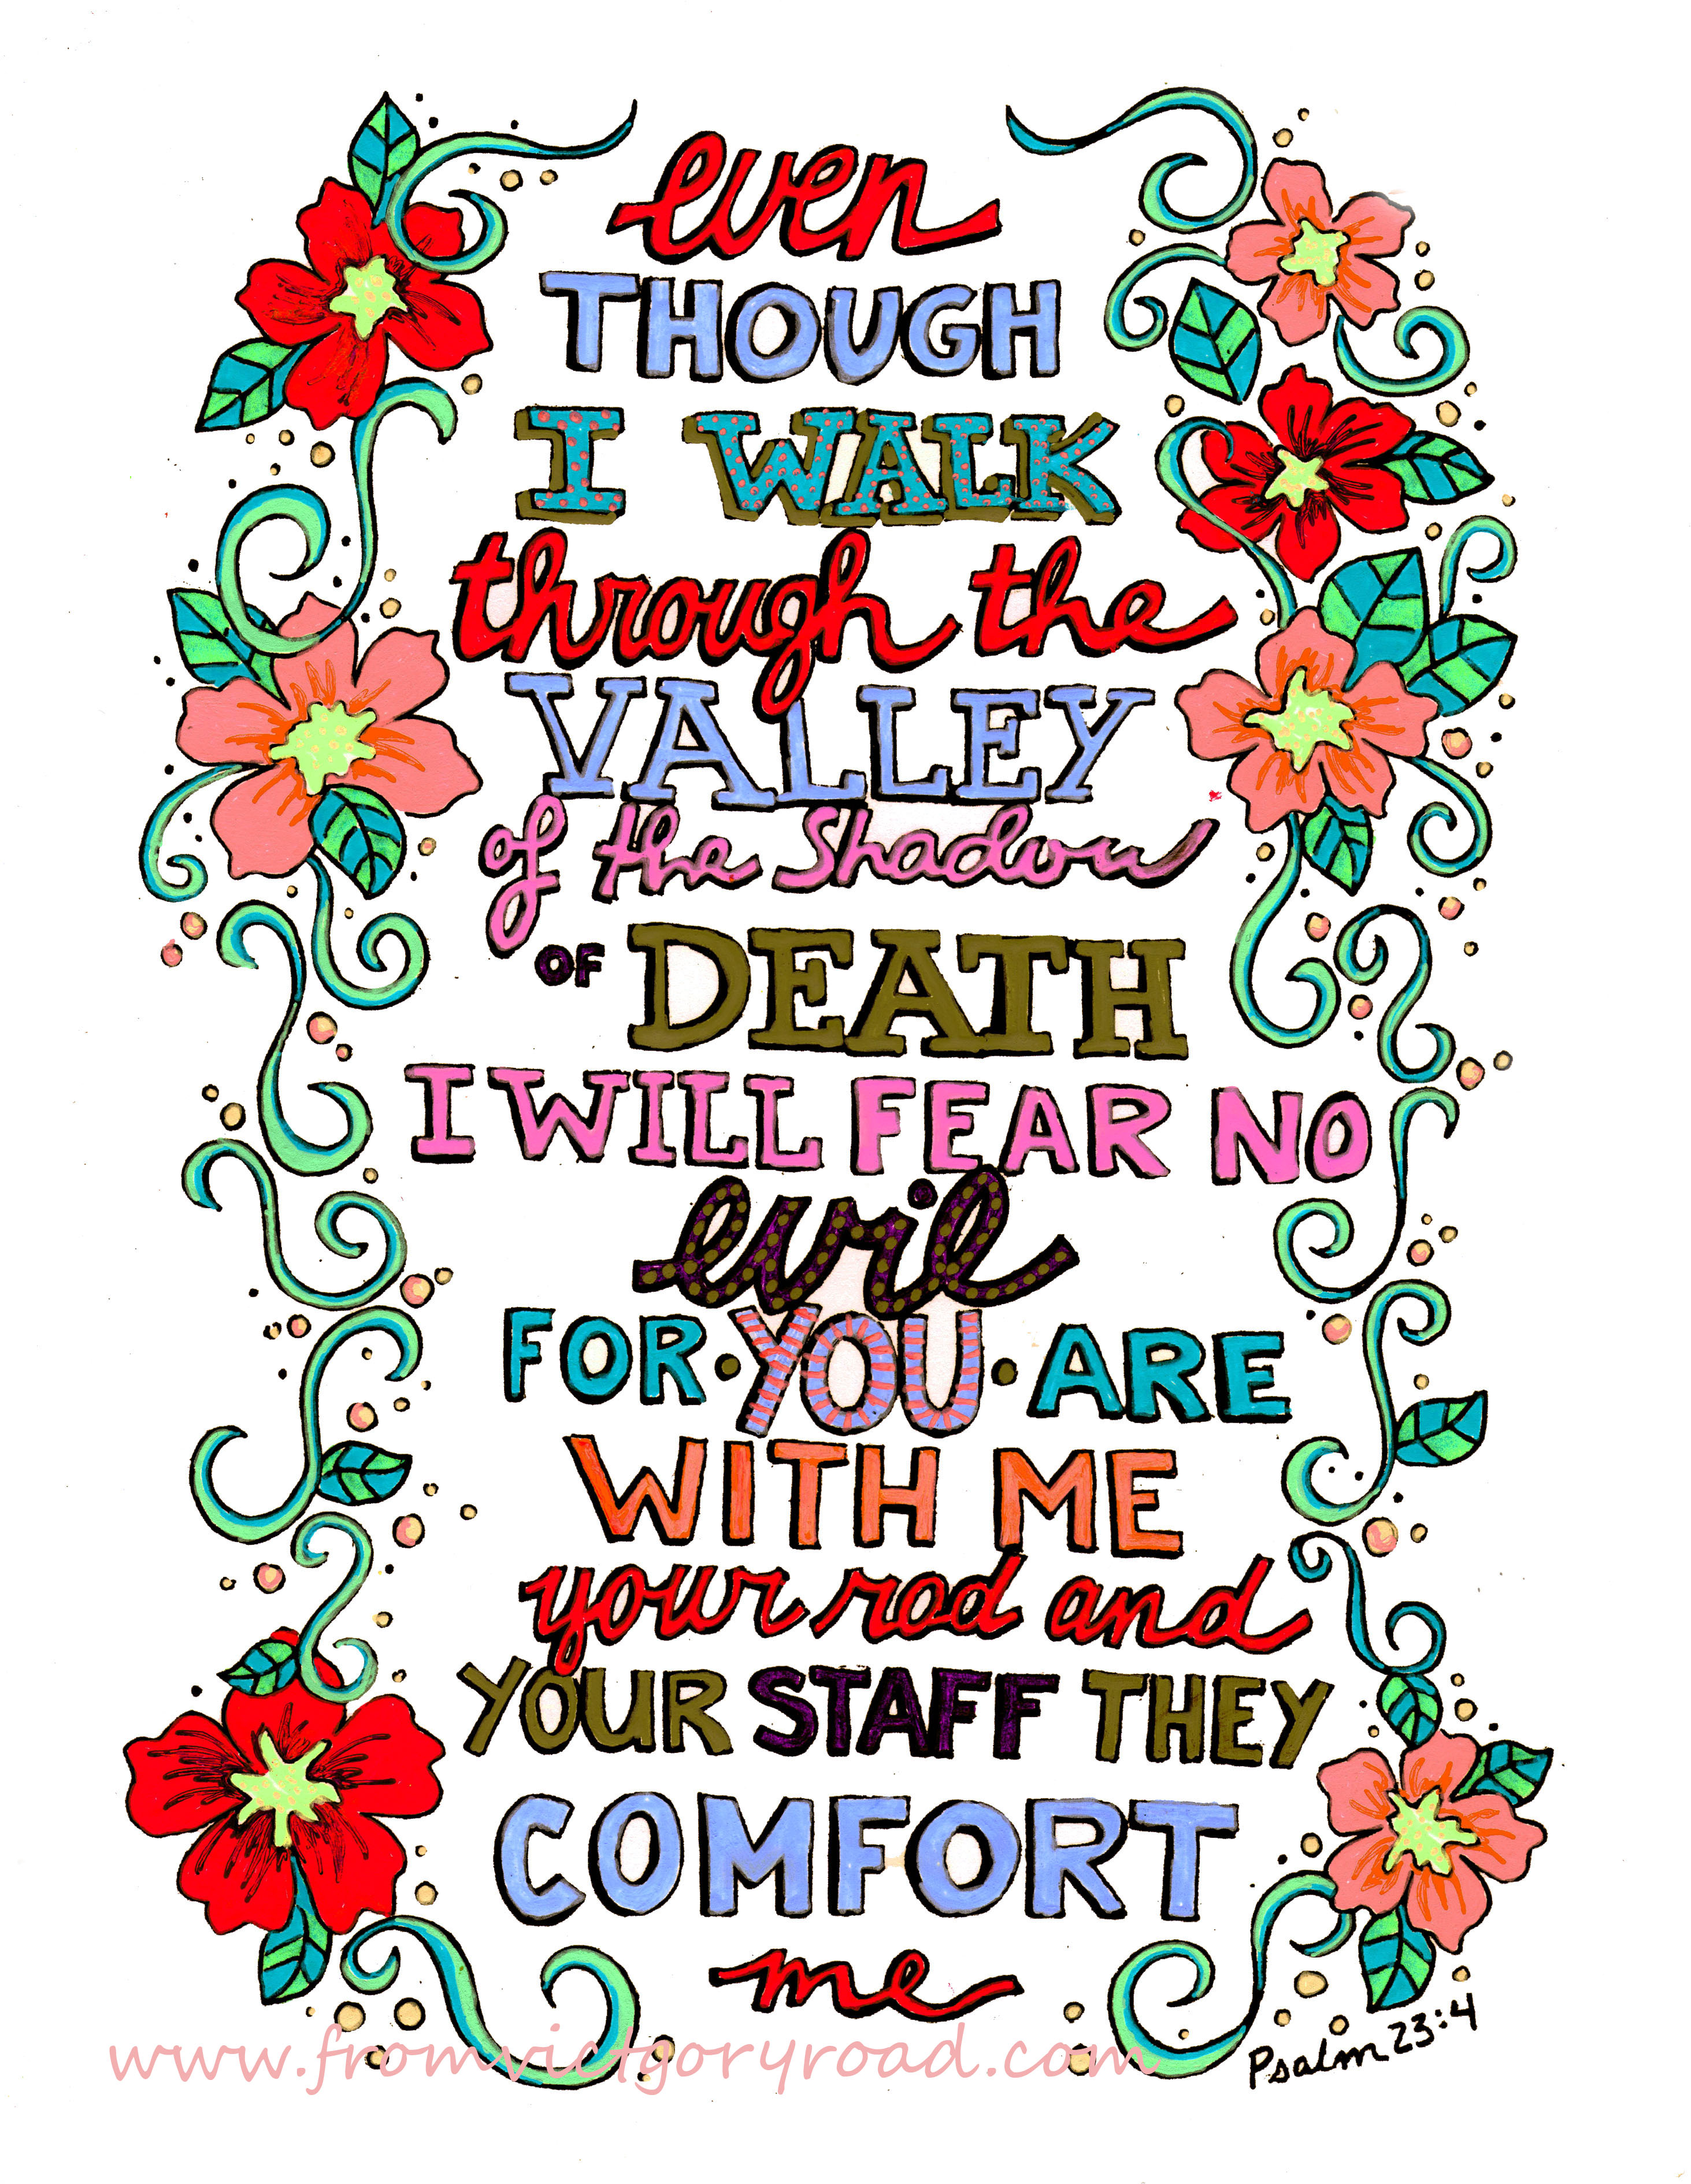 even
THOUGH
I WALK
through the
VALLEY
of the Shadow
OF DEATH
I WILL FEAR NO
evil
FOR · YOU · ARE
WITH ME
your rod and
YOUR STAFF THEY
COMFORT
me
www.fromvictgoryroad.com
Psalm 23:4